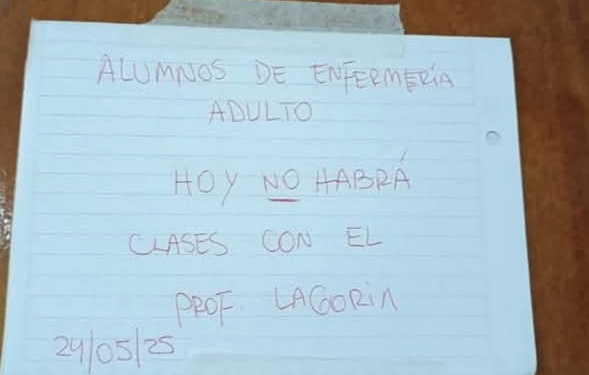 ALUMNOS DE ENFERMERÍA
ADULTO
HOY NO HABRÁ
CLASES CON EL
PROF. LAGORIA
29/05/25